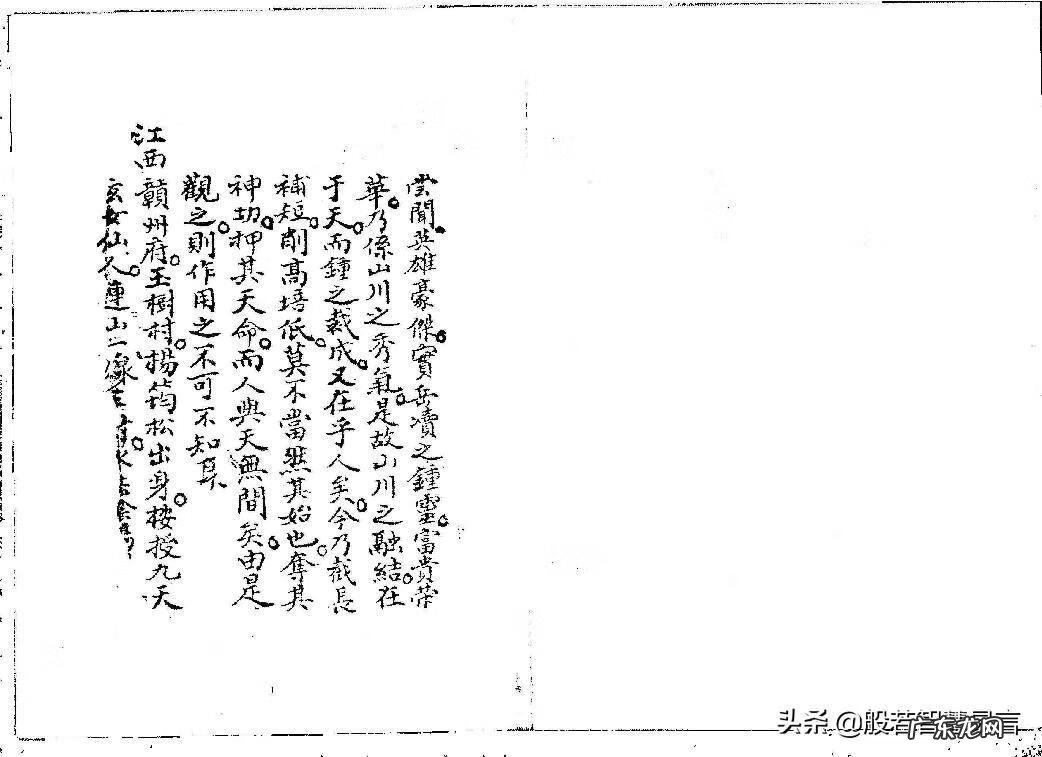 嘗聞英雄豪傑實岳瀆之鍾靈富貴榮
華乃係山川之秀氣是故山川之融結在
于天而鍾之裁成又在乎人矣今乃截長
補短削高培低莫不當然其始也奪其
神切押其天命而人與天無間矣由是
觀之則作用之不可不知
江西贛州府玉樹村楊筠松出身授九天
玄女仙人連山二
頭条@般若智慧
广东龙网